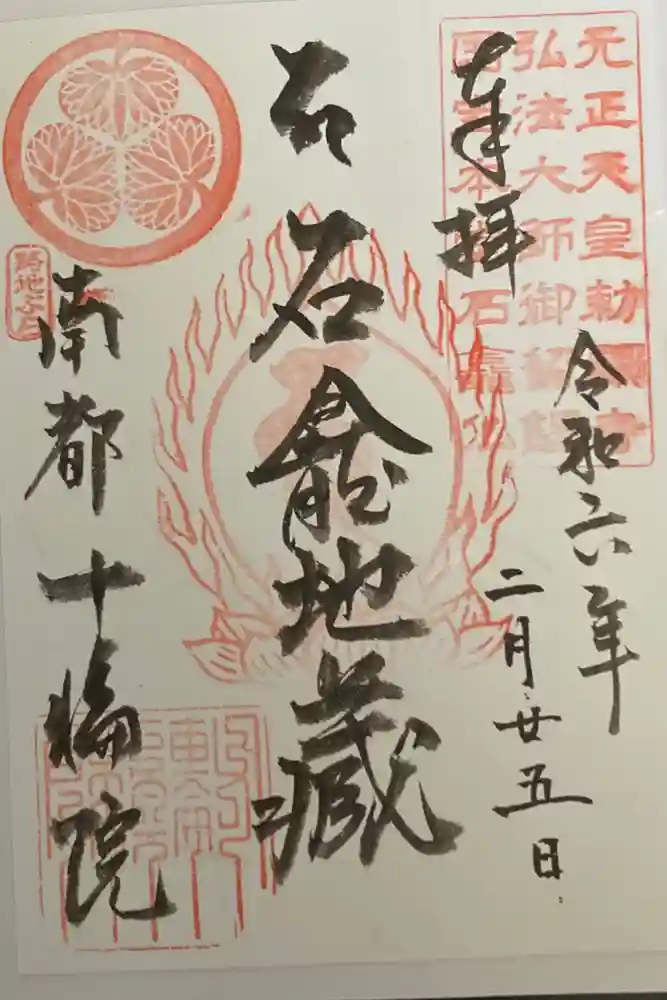 元正天皇勅願寺
弘法大師御
本 石龕仏
奉拝
令和六年
二月廿五日
石龕地蔵
南都十輪院